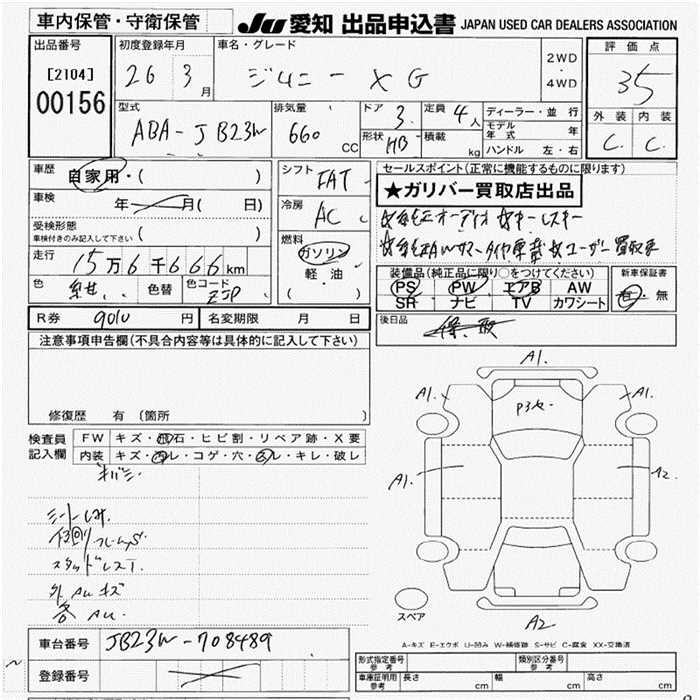 車内保管・守衛保管
JU 愛知 出品申込書 JAPAN USED CAR DEALERS ASSOCIATION
出品番号
[2104]
00156
初度登録年月
26 3月
車名・グレード
ジムニー XG
2WD
・
4WD
評価点
35
外装 内装
C. C.
型式
ABA-JB23W
排気量
660 CC
ドア 3.
形状 HB
定員 4人
積載 kg
ディーラー・並行
モデル年式 年
ハンドル 左・右
車歴 自家用・( )
車検 年 月( 日)
受検形態
車検付きのみ記入して下さい ( )
走行 15万6千666km
色 紺 色替 色コード ZJP
シフト FAT
冷房 AC
燃料
ガソリン
軽・油
( )
セールスポイント(正常に機能するものに限ります)
★ガリバー買取店出品
装備品(純正品に限り○をつけてください)
PS PW エアB AW
SR ナビ TV カワシート
新車保証書
有・無
R券 9010 円 名変期限 月 日
後日品
注意事項申告欄(不具合内容等は具体的に記入して下さい)
修復歴 有(箇所 )
検査員記入欄
FW キズ・飛石・ヒビ割・リペア跡・X要
内装 キズ・汚レ・コゲ・穴・スレ・キレ・破レ
スタッドレス
外AUキズ
各AU.
A1.
A1.
A1.
A1.
A2.
A2
スペア
A-キズ E-エクボ U-凹み W-補修跡 S-サビ C-腐食 XX-交換済
車台番号 JB23W-708489
登録番号
形式指定番号 参考
類別区分番号 参考
車庫証明用 参考 長さ cm 幅 cm 高さ cm